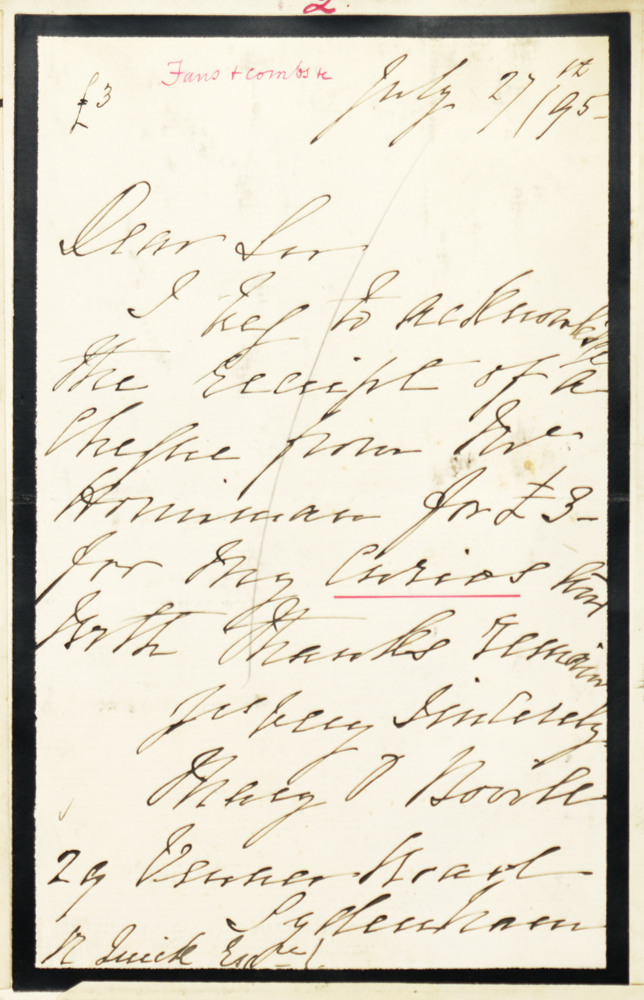 2
£3
Fans + combs &c
July 27th/95-
Dear Sir
I beg to acknowledge
the receipt of a
Cheque from Mr
Horniman for £3-
for my Curios and
With thanks remain
yrs very Sincerely
Mary
29 Venner Road
Sydenham
R Quick Esqre